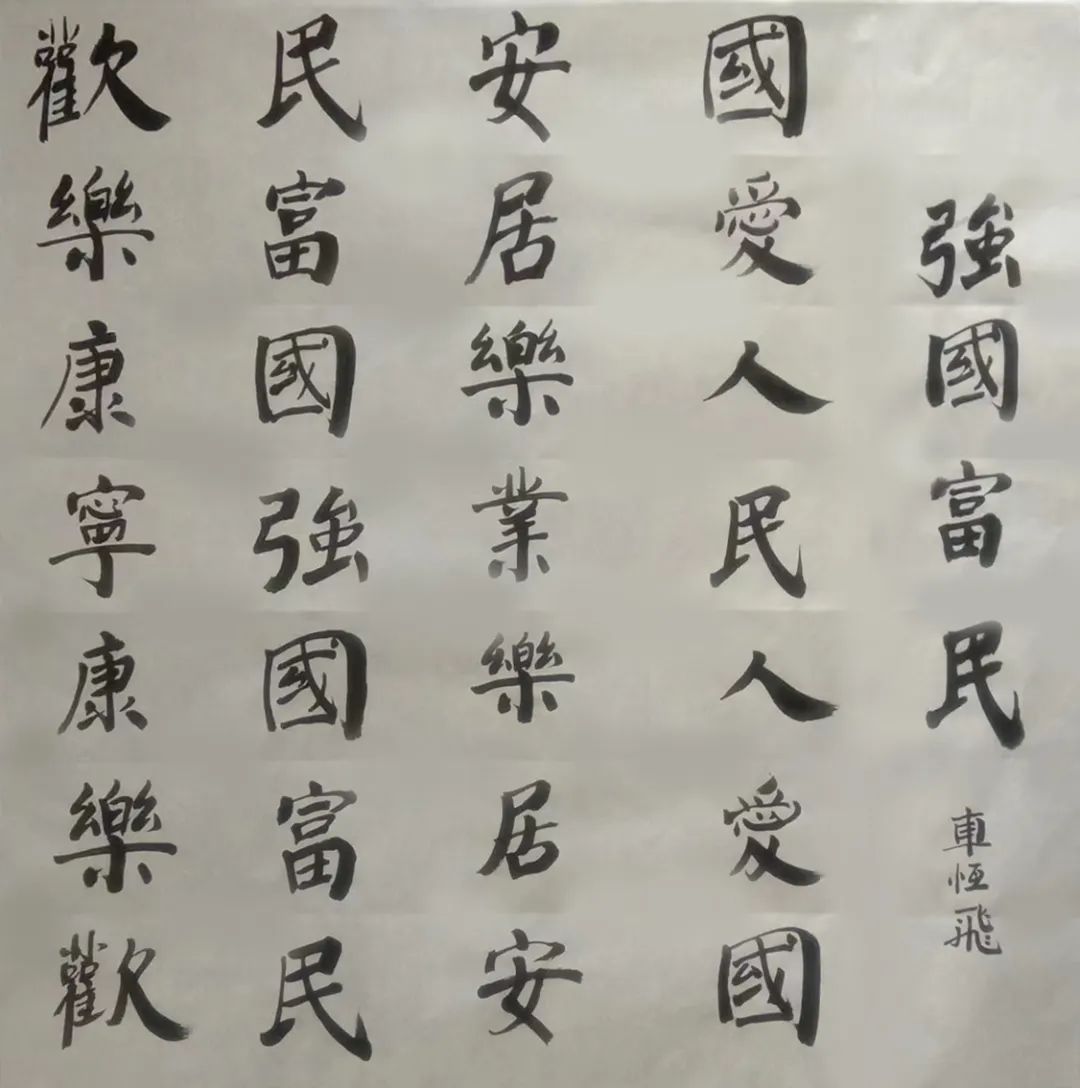 強國富民
車恆飛
國愛人民人愛國
安居樂業樂居安
民富國強國富民
歡樂康寧康樂歡